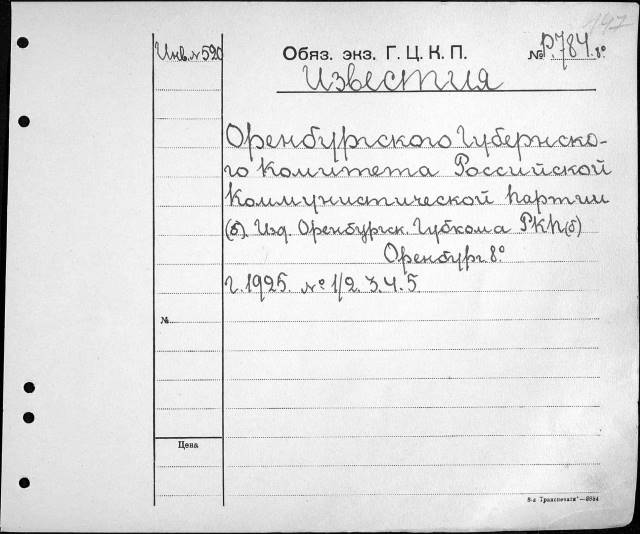 447
Инв. № 520
Обяз. экз. Г. Ц. К. П.
№ Р.784. 8°
Известия
Оренбургского Губернско-
го Комитета Российской
Коммунистической партии
(б). Изд. Оренбургск. Губкома РКП(б)
Оренбург. 8°
г. 1925. № 1/2. 3. 4. 5.
№
Цена